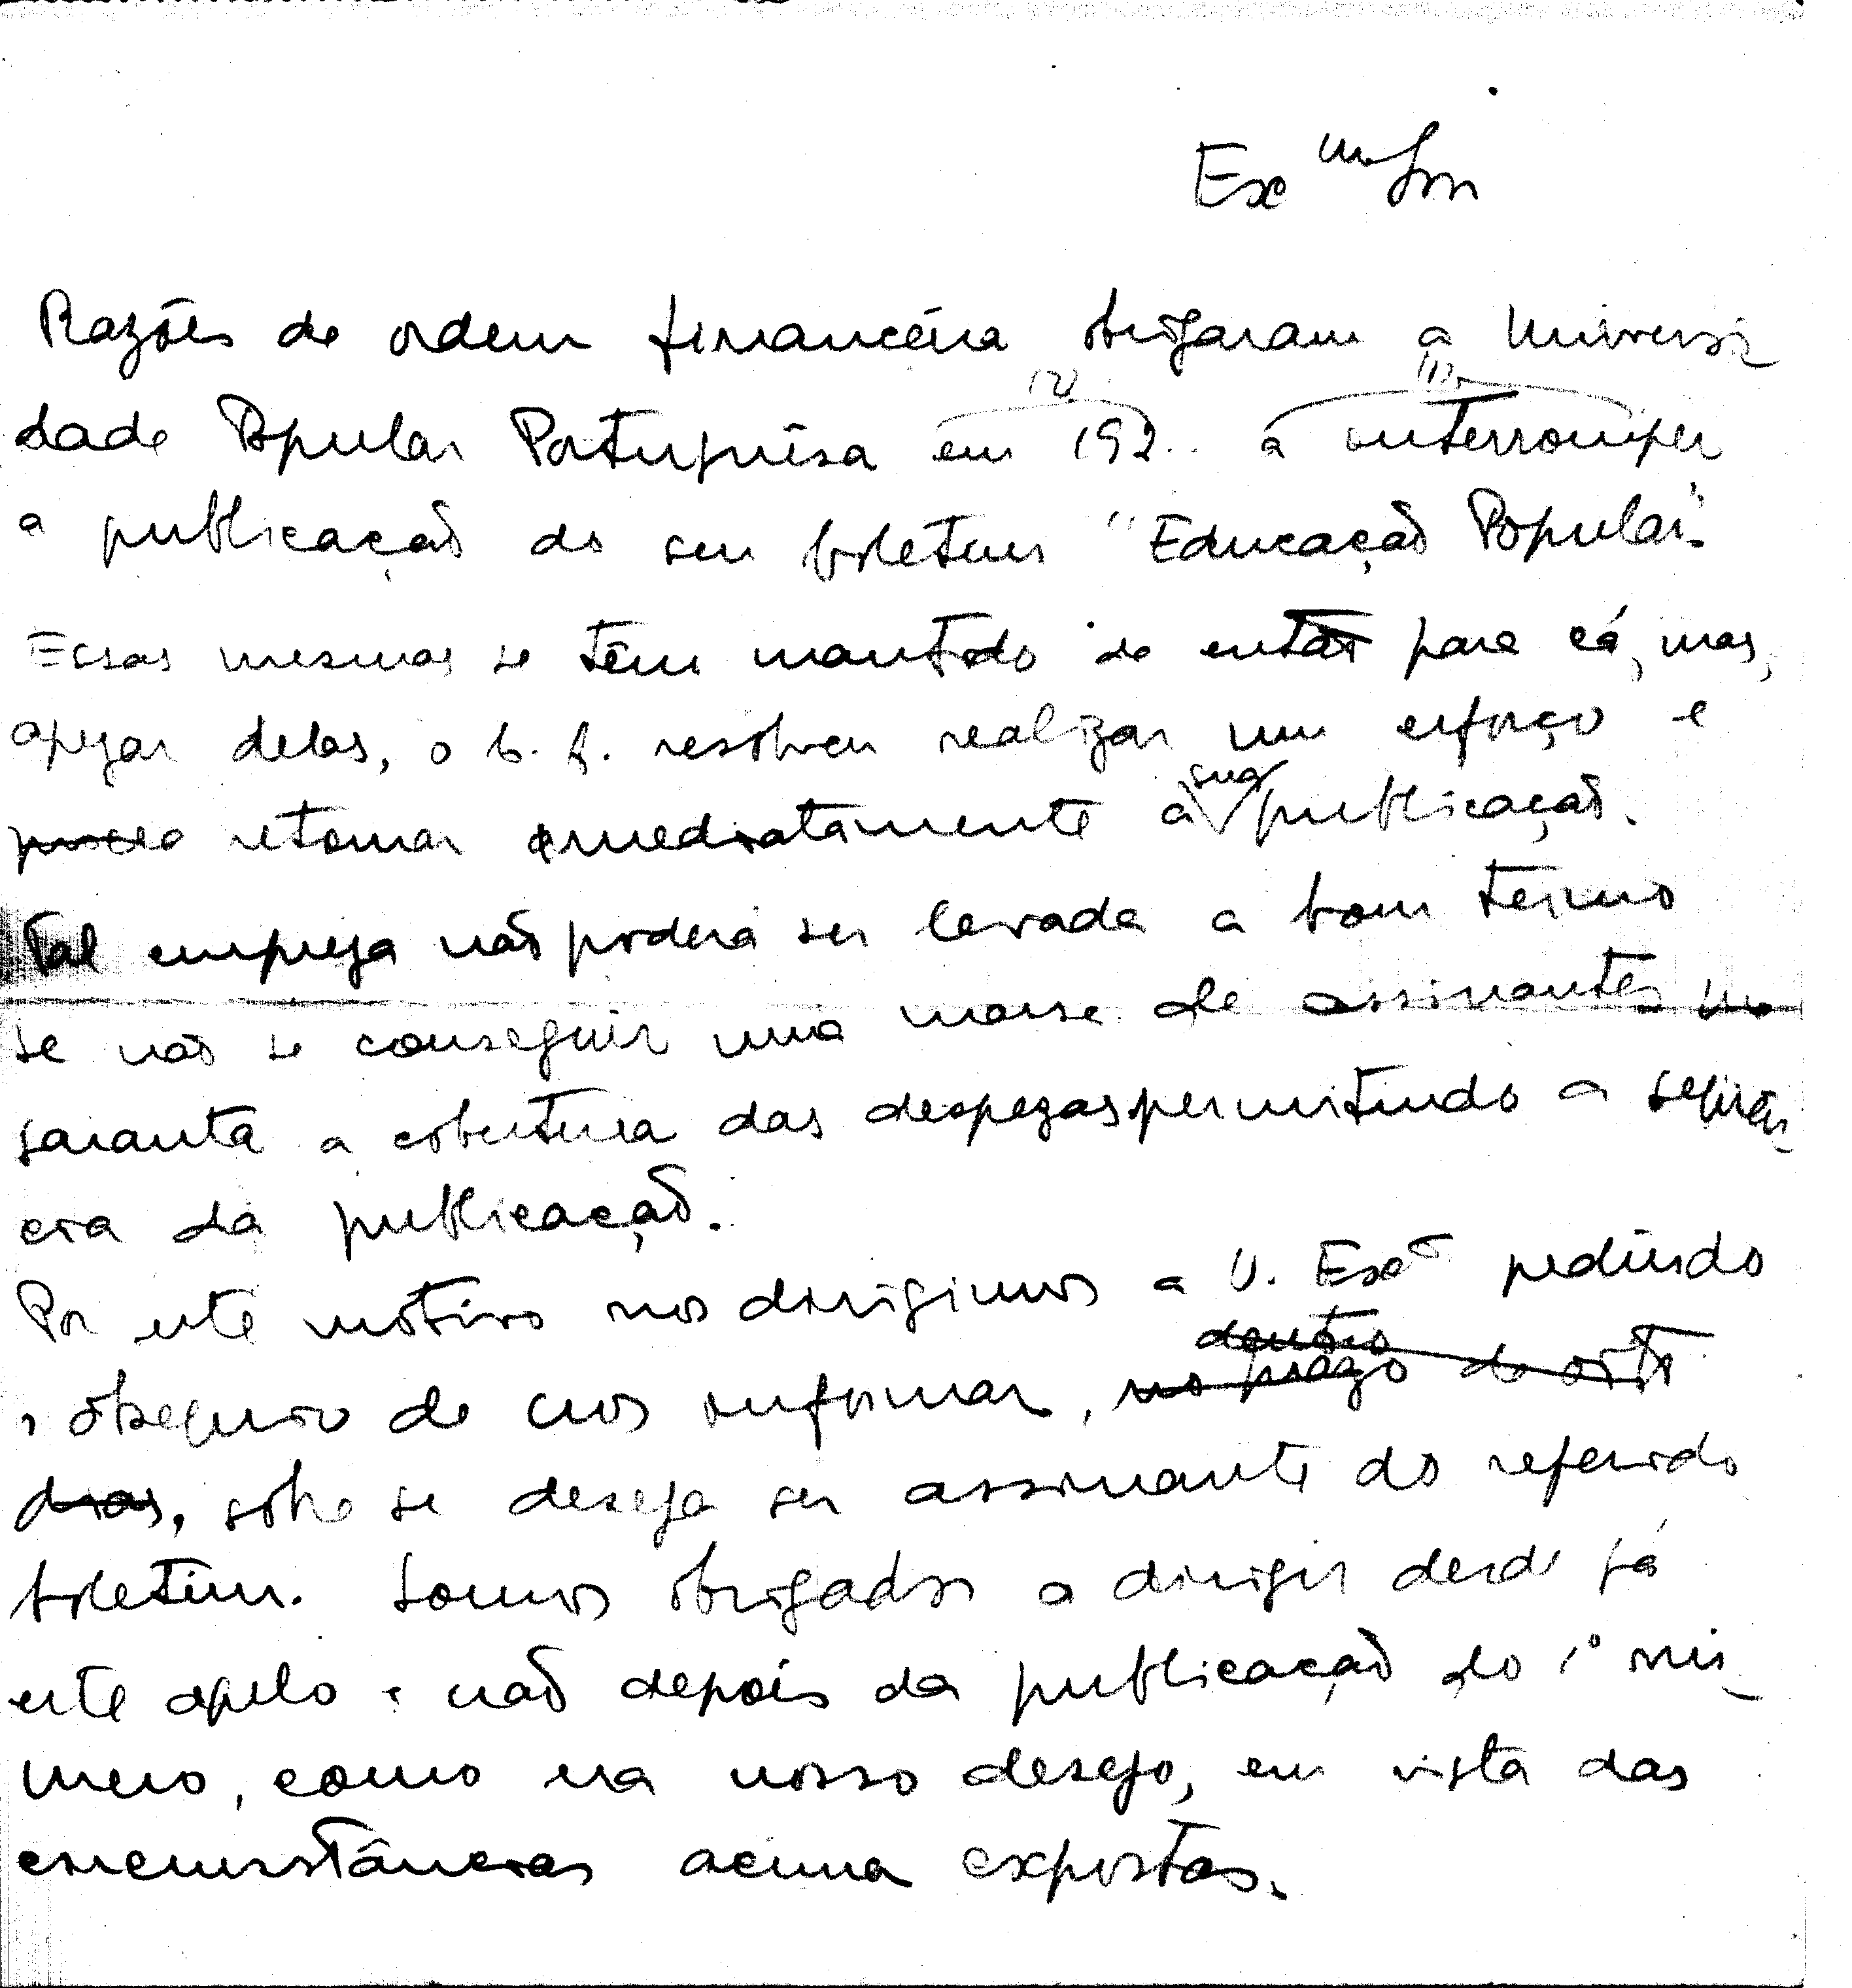 Ex.mo Snr
Razões de ordem financeira obrigaram a Universi-
dade Popular Portuguêsa em 192.. a interromper
(2) (1)
a publicação do seu boletim "Educação Popular".
Essas mesmas se têm mantido de então para cá, mas,
apezar delas, o C. A. resolveu realizar um esforço e
retomar imediatamente a sua publicação.
Tal empreza não poderá ser levada a bom têrmo
se não se conseguir uma massa de assinantes
garanta a cobertura das despezas permitindo a sequên-
cia da publicação.
Por este motivo nos dirigimos a V. Exª pedindo
dentro
o obsequio de nos informar, no prazo de oito
dias, sobre se deseja ser assinante do referido
boletim. Somos obrigados a dirigir desde já
este apelo e não depois da publicação do 1º nú-
mero, como era nosso desejo, em vista das
circunstâncias acima expostas.